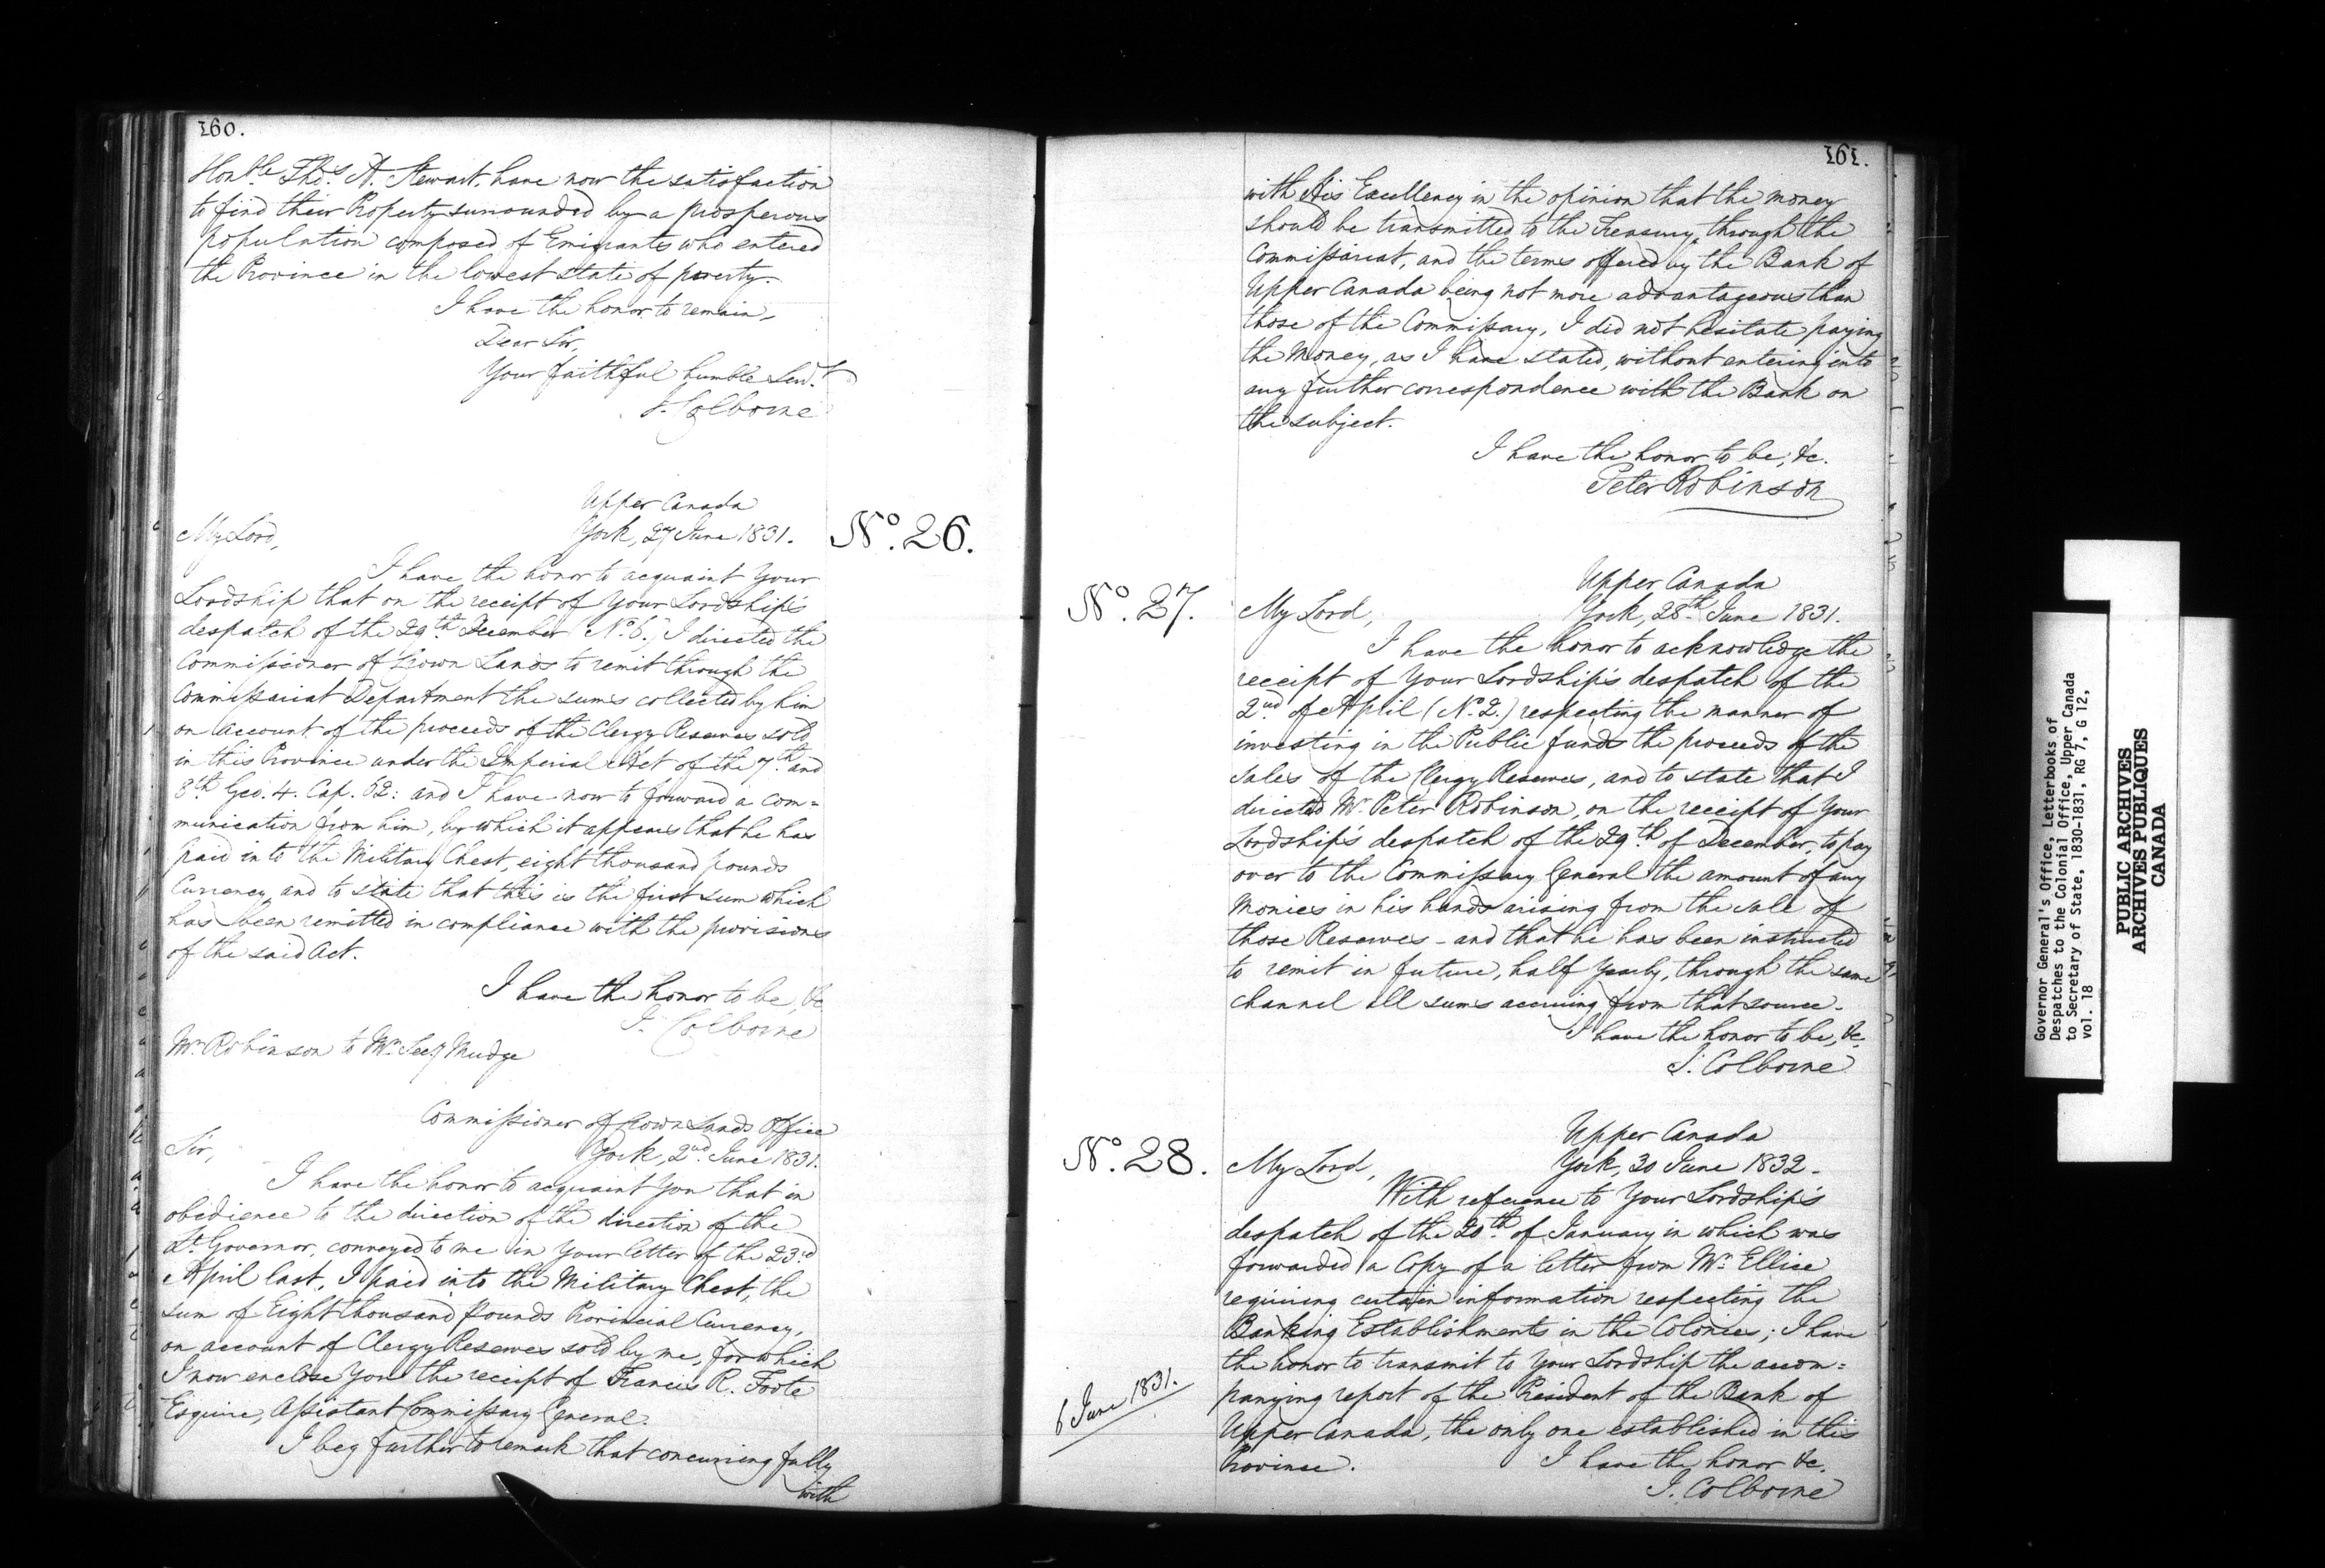 160.
Honble Thos. A. Stewart, have now the satisfaction
to find their Property surrounded by a prosperous
population composed of Emigrants who entered
the Province in the lowest state of poverty.
I have the honor to remain,
Dear Sir,
Your faithful humble Servt.
J. Colborne
Upper Canada
York, 27 June 1831.
No. 26.
My Lord,
I have the honor to acquaint Your
Lordship that on the receipt of Your Lordship's
despatch of the 29th December (No. 6.) I directed the
Commissioner of Crown Lands to remit through the
Commissariat Department the sums collected by him
on account of the proceeds of the Clergy Reserves sold
in this Province under the Imperial Act of the 7th and
8th Geo. 4. Cap. 62: and I have now to forward a com=
munication from him, by which it appears that he has
paid into the Military Chest, eight thousand pounds
Currency, and to state that this is the first sum which
has been remitted in compliance with the provisions
of the said Act.
I have the honor to be, &c
J. Colborne
Mr. Robinson to Mr. Secy Mudge
Commissioner of Crown Lands Office
York, 2nd. June 1831.
Sir,
I have the honor to acquaint You that in
obedience to the direction of the direction of the
Lt Governor, conveyed to me in Your letter of the 23rd
April last, I paid into the Military Chest, the
sum of Eight thousand pounds Provincial Currency,
on account of Clergy Reserves sold by me, for which
I now enclose You the receipt of Francis R. Foote
Esquire, Assistant Commissary General.
I beg further to remark that concurring fully
with
161.
with His Excellency in the opinion that the money
should be transmitted to the Treasury, through the
Commissariat, and the terms offered by the Bank of
Upper Canada being not more advantageous than
those of the Commissary, I did not hesitate paying
the Money, as I have stated, without entering into
any further correspondence with the Bank on
the subject.
I have the honor to be, &c.
Peter Robinson
Upper Canada
York, 28th. June 1831.
No. 27.
My Lord,
I have the honor to acknowledge the
receipt of Your Lordship's despatch of the
2nd. of April (No. 2.) respecting the manner of
investing in the Public funds the proceeds of the
Sales of the Clergy Reserves, and to state that I
directed Mr. Peter Robinson, on the receipt of Your
Lordship's despatch of the 29th of December, to pay
over to the Commissary General the amount of any
Monies in his hands arising from the sale of
those Reserves - and that he has been instructed
to remit in future, half Yearly, through the same
channel all sums accruing from that source.
I have the honor to be, &c.
J. Colborne
Upper Canada
York, 30 June 1832.
No. 28.
My Lord,
With reference to Your Lordship's
despatch of the 20th of January in which was
forwarded a Copy of a letter from Mr. Ellice
requiring certain information respecting the
Banking Establishments in the Colonies; I have
the honor to transmit to Your Lordship the accom=
panying report of the President of the Bank of
Upper Canada, the only one established in this
Province.
6 June 1831.
I have the honor &c.
J. Colborne
Governor General's Office, Letterbooks of
Despatches to the Colonial Office, Upper Canada
to Secretary of State, 1830-1831, RG 7, G 12,
vol. 18
PUBLIC ARCHIVES
ARCHIVES PUBLIQUES
CANADA